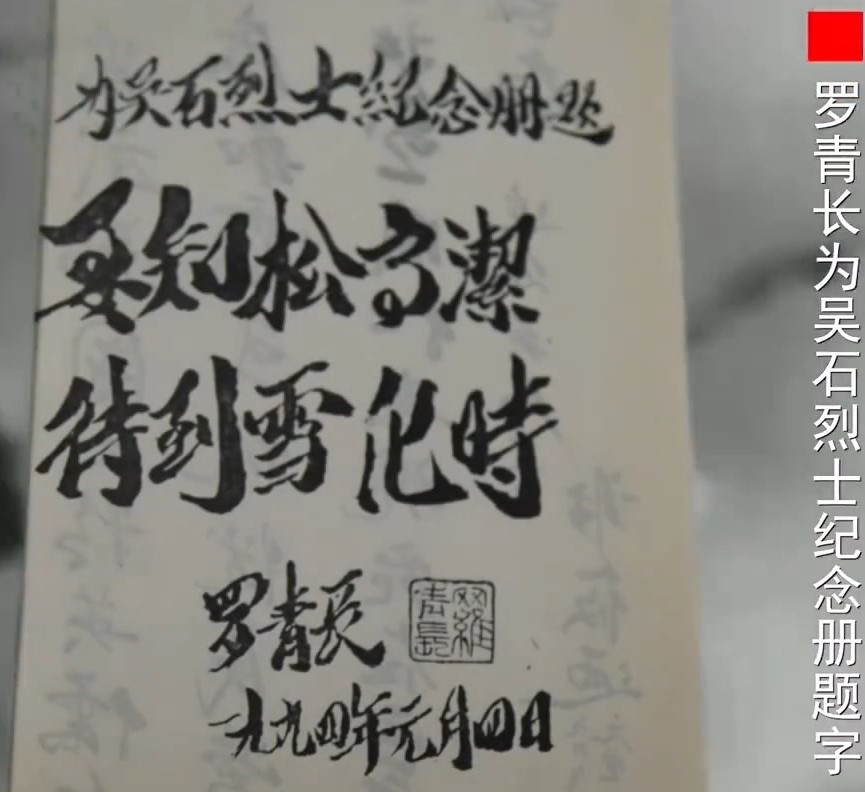 为吴石烈士纪念册题
要知松高潔
待到雪化時
罗青长
羅青長
一九九四年元月四日
罗青长为吴石烈士纪念册题字